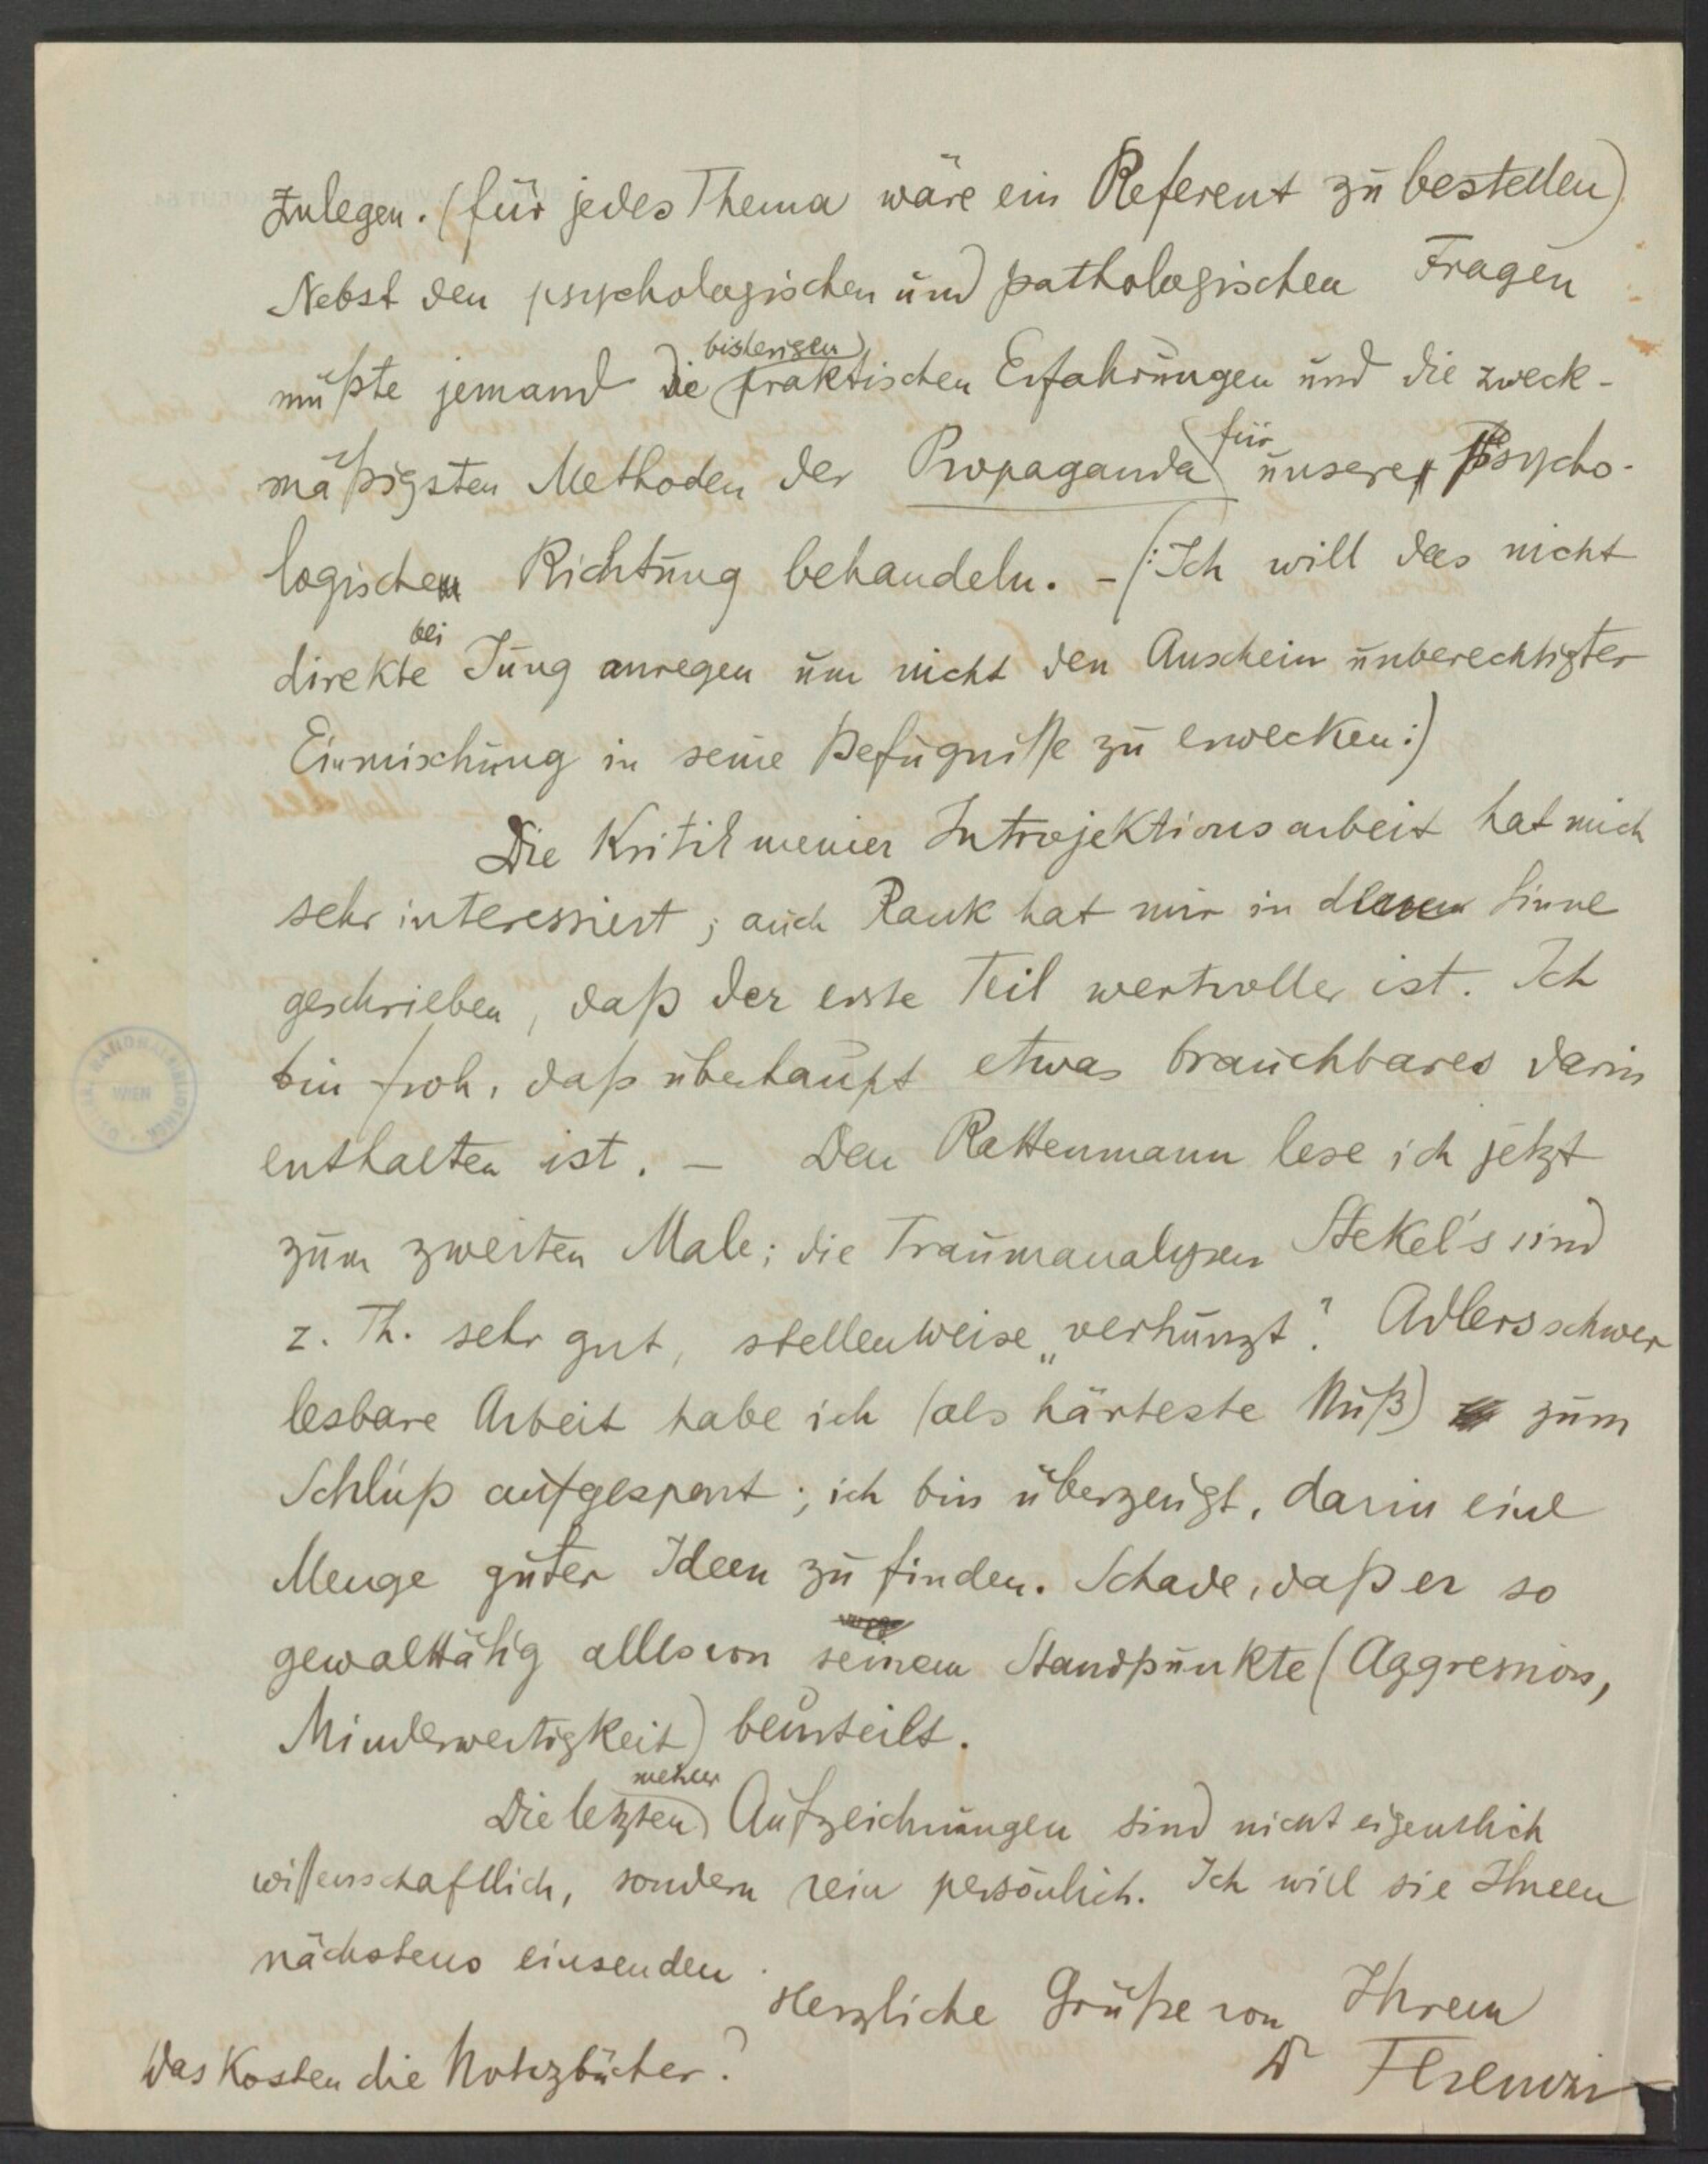 zulegen. (für jedes Thema wäre ein Referent zu bestellen)
Nebst den psychologischen und pathologischen Fragen
müßte jemand die bisherigen praktischen Erfahrungen und die zweck-
mäßigsten Methoden der Propaganda für unsere Psycho-
logische Richtung behandeln. - (: Ich will das nicht
direkte bei Jung anregen um nicht den Anschein unberechtigter
Einmischung in seine Befugnisse zu erwecken :)
Die Kritik meiner Introjektionsarbeit hat mich
sehr interessiert; auch Rank hat mir in Sinne
geschrieben, daß der erste Teil wertvoller ist. Ich
bin froh, daß überhaupt etwas brauchbares darin
enthalten ist. – Den Rattenmann lese ich jetzt
zum zweiten Male; die Traumanalysen Stekel's sind
z. Th. sehr gut, stellenweise „verhunzt". Adlers schwer
lesbare Arbeit habe ich (als härteste Nuß) zum
Schluß aufgespart; ich bin überzeugt, darin eine
Menge guter Ideen zu finden. Schade, daß er so
gewalttätig alles von seinem Standpunkte (Aggression,
Minderwertigkeit) beurteilt.
Die letzten Aufzeichnungen sind nicht eigentlich
wissenschaftlich, sondern rein persönlich. Ich will sie Ihnen
nächstens einsenden.
Herzliche Grüße von Ihrem
Dr Ferenczi
Was kosten die Notizbücher?
WIEN